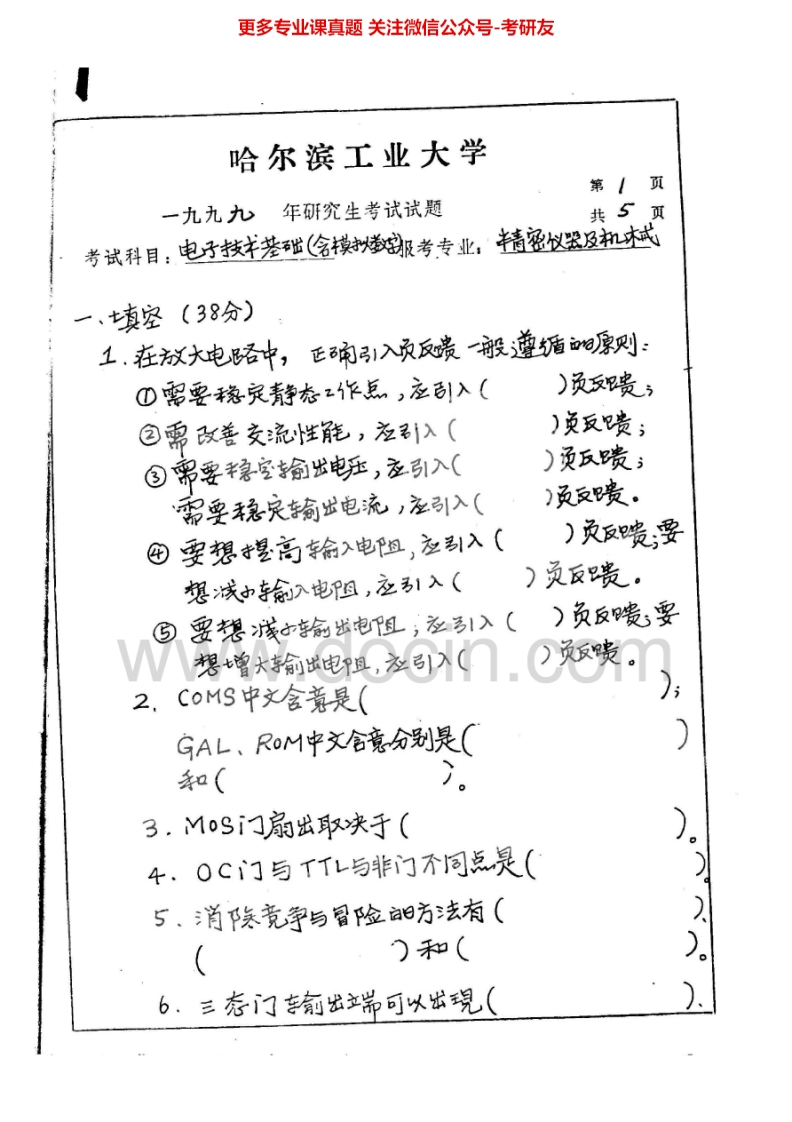 更多专业课真题 关注微信公众号-考研友
哈尔滨工业大学
第 1 页
一九九九 年研究生考试试题
共 5 页
考试科目：电子技术基础(含模拟数字)报考专业：精密仪器及机械
一、填空（38分）
1. 在放大电路中，正确引入负反馈一般遵循的原则：
①需要稳定静态工作点，应引入（ ）负反馈；
②需改善交流性能，应引入（ ）负反馈；
③需要稳定输出电压，应引入（ ）负反馈；
需要稳定输出电流，应引入（ ）负反馈。
④要想提高输入电阻，应引入（ ）负反馈；要
想减小输入电阻，应引入（ ）负反馈。
⑤要想减小输出电阻，应引入（ ）负反馈；要
想增大输出电阻，应引入（ ）负反馈。
www.docin.com
2. COMS中文含意是（ ）；
GAL、ROM中文含意分别是（ ）
和（ ）。
3. MOS门扇出取决于（ ）。
4. OC门与TTL与非门不同点是（ ）。
5. 消除竞争与冒险的方法有（ ）、
（ ）和（ ）。
6. 三态门输出端可以出现（ ）、